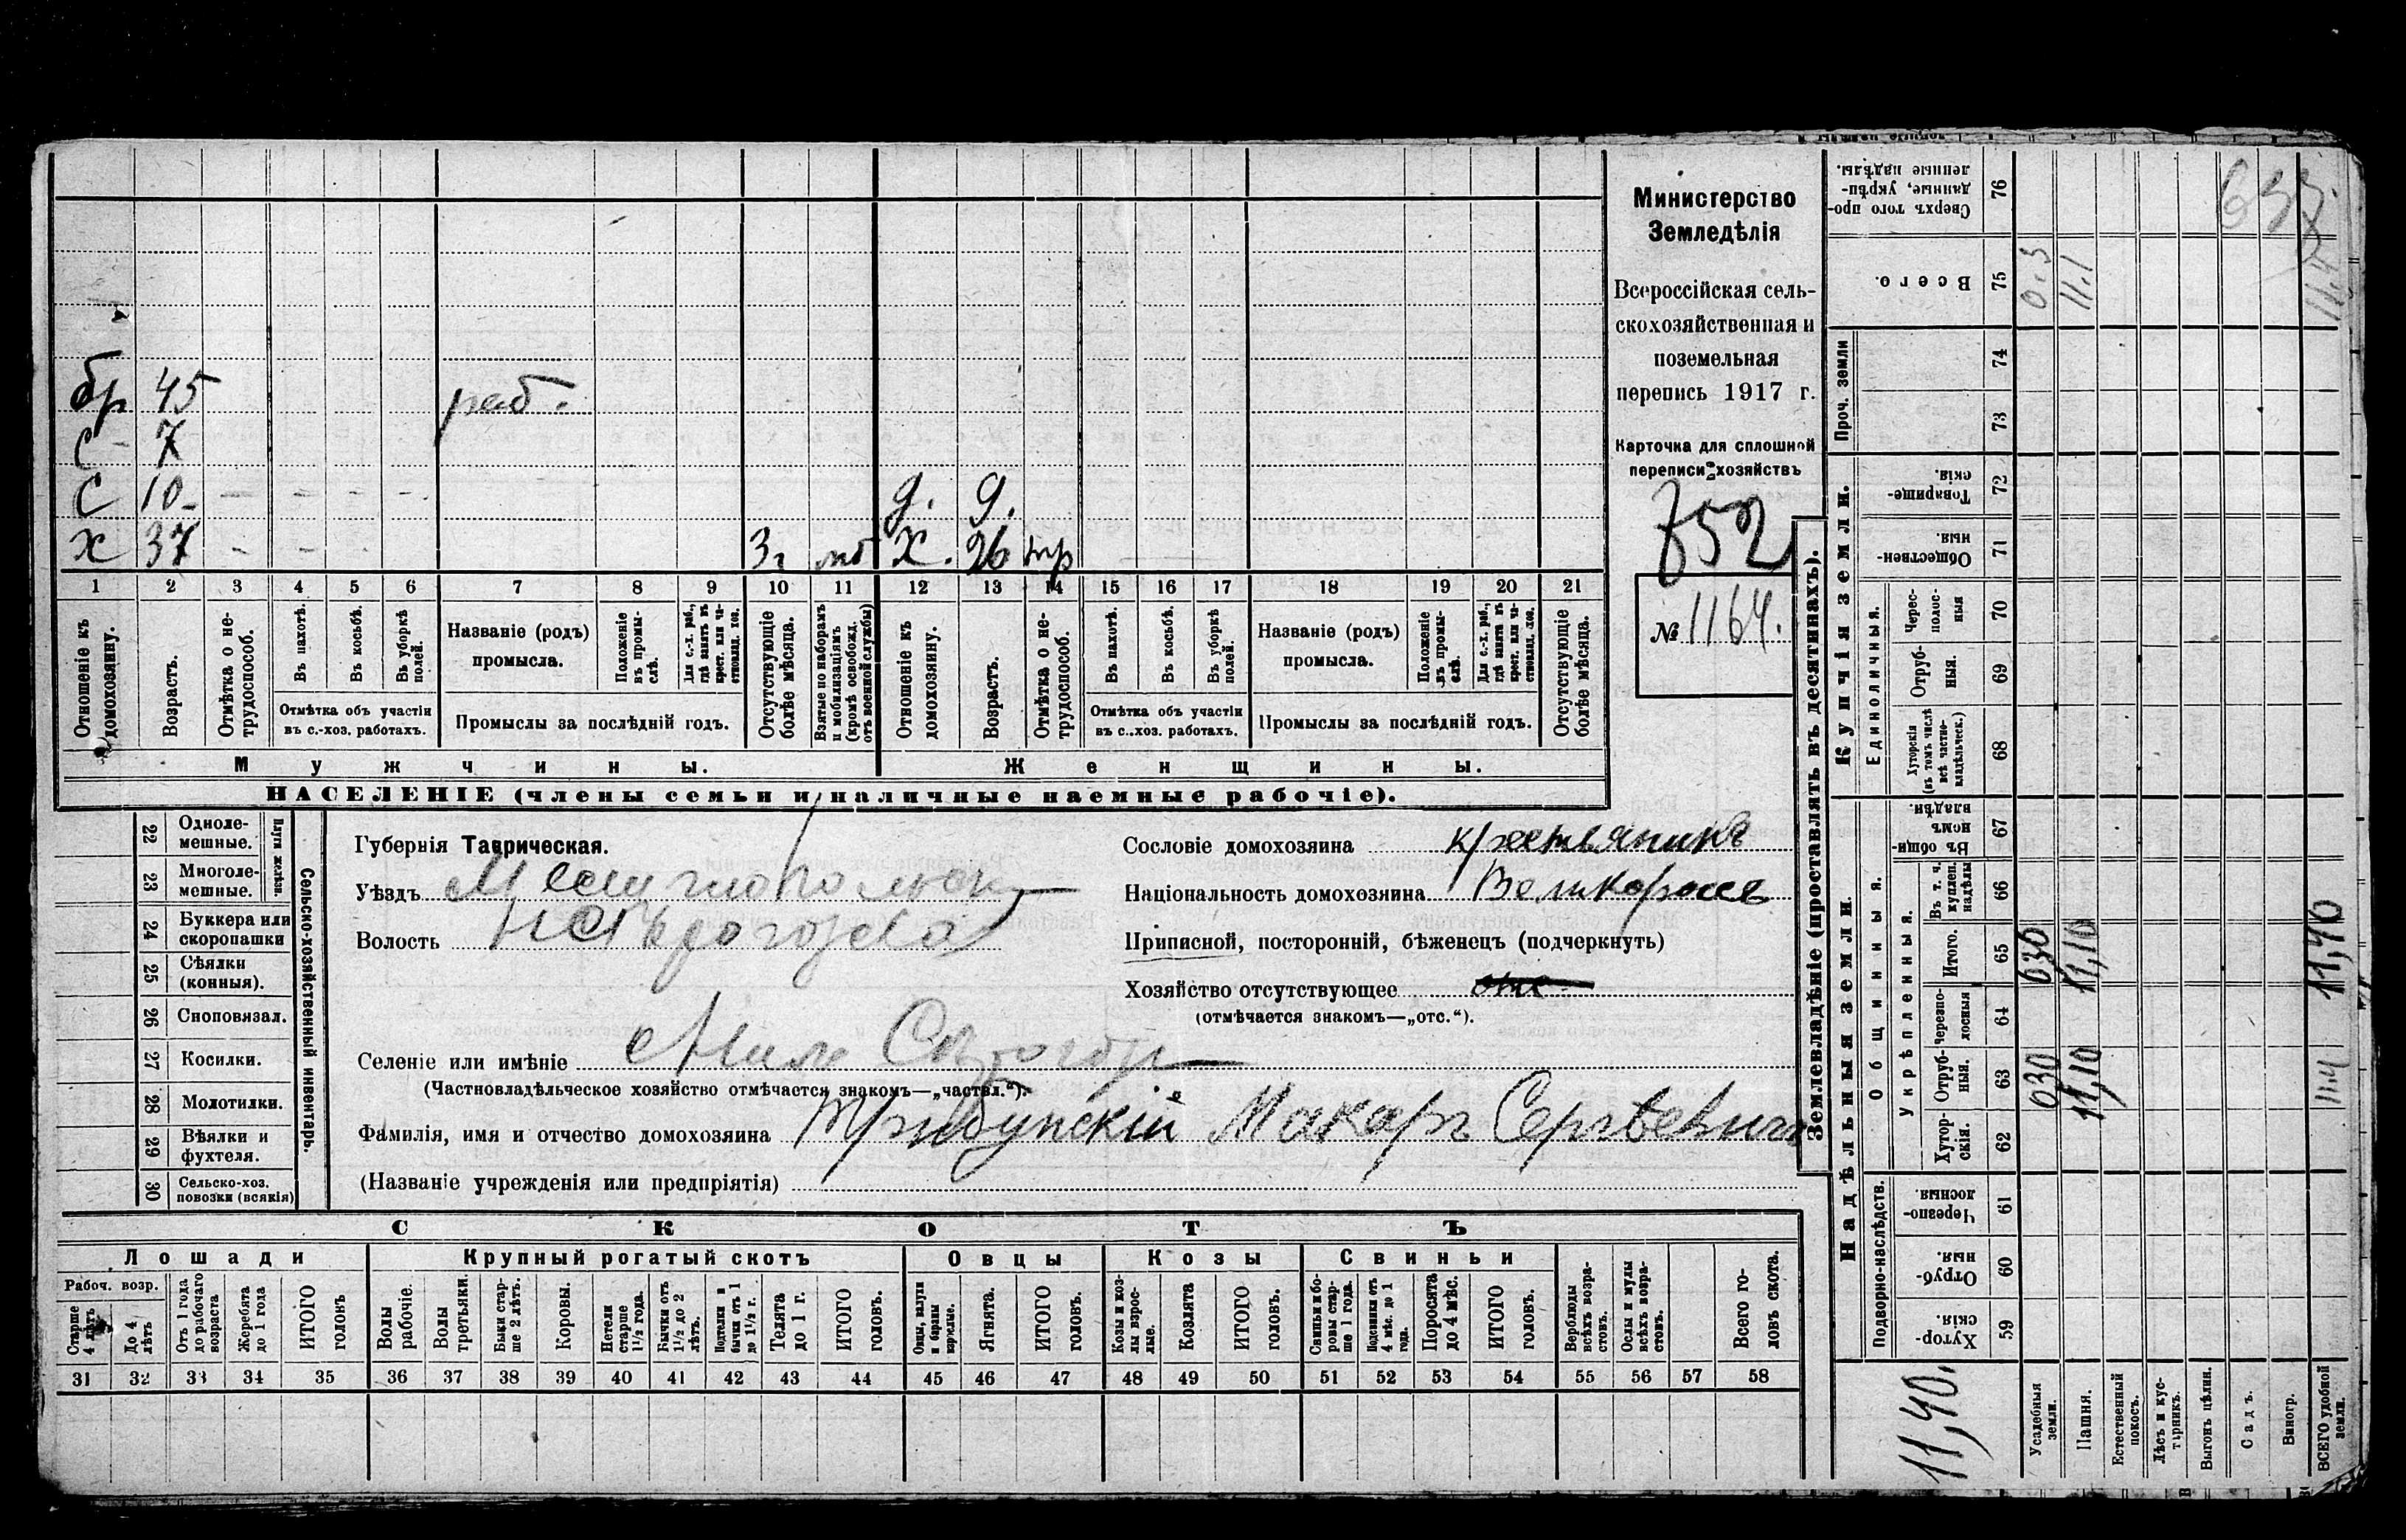 бр 45 раб.
С - 7
С 10 - - - - - д. 9.
х 37 - - - 3 г мб х. 26 тр
1 2 3 4 5 6 7 8 9 10 11 12 13 14 15 16 17 18 19 20 21
Отношеніе къ домохозяину.
Возрастъ.
Отмѣтка о не-трудоспособ.
Въ пахотѣ.
Въ косьбѣ.
Въ уборкѣ полей.
Отмѣтка объ участіи
въ с.-хоз. работахъ.
Названіе (родъ)
промысла.
Положеніе въ промы-слѣ.
Для с.-х. раб., гдѣ занятъ въ крест. или ча-стновлад. хоз.
Промыслы за послѣдній годъ.
Отсутствующіе болѣе мѣсяца.
Взятые по наборамъ и мобилизаціямъ (кромѣ освобожд. отъ военной службы)
Отношеніе къ домохозяину.
Возрастъ.
Отмѣтка о не-трудоспособ.
Въ пахотѣ.
Въ косьбѣ.
Въ уборкѣ полей.
Отмѣтка объ участіи
въ с..хоз. работахъ.
Названіе (родъ)
промысла.
Положеніе въ промы-слѣ.
Для с.-х. раб., гдѣ занята въ крест. или ча-стновлад. хоз.
Промыслы за послѣдній годъ.
Отсутствующіе болѣе мѣсяца.
Мужчины. Женщины.
НАСЕЛЕНІЕ (члены семьи и наличные наемные рабочіе).
Министерство
Земледѣлія
Всероссійская сель-
скохозяйственная и
поземельная
перепись 1917 г.
Карточка для сплошной
переписи хозяйствъ
752
№ 1164.
22 Одноле-мешные.
23 Многоле-мешные.
Плуги желѣзн.
24 Буккера или скоропашки
25 Сѣялки (конныя).
26 Сноповязал.
27 Косилки.
28 Молотилки.
29 Вѣялки и фухтеля.
30 Сельско-хоз. повозки (всякія)
Сельско-хозяйственный инвентарь.
Губернія Таврическая.
Уѣздъ Мелитопольск
Волость
Селеніе или имѣніе
(Частновладѣльческое хозяйство отмѣчается знакомъ—„частвл.“).
Фамилія, имя и отчество домохозяина Трибунскій Макаръ Сергѣевичъ
(Названіе учрежденія или предпріятія)
Сословіе домохозяина крестьянинъ
Національность домохозяина Великороссъ
Приписной, посторонній, бѣженецъ (подчеркнуть)
Хозяйство отсутствующее отс
(отмѣчается знакомъ—„отс.“).
СКОТЪ
Лошади Крупный рогатый скотъ Овцы Козы Свиньи
Рабоч. возр.
Старше 4 лѣтъ
До 4 лѣтъ
Отъ 1 года до рабочаго возраста
Жеребята до 1 года
ИТОГО головъ
Волы рабочіе.
Волы третьяки.
Быки стар-ше 2 лѣтъ.
Коровы.
Нетели старше 1 1/2 года.
Бычки отъ 1 1/2 до 2 лѣтъ.
Подтелки и бычки отъ 1 до 1 1/2 г.
Телята до 1 г.
ИТОГО головъ.
Овцы, валухи и бараны взрослые.
Ягнята.
ИТОГО головъ.
Козы и коз-лы взрос-лые.
Козлята
ИТОГО головъ.
Свиньи и бо-ровы стар-ше 1 года.
Подсвинки отъ 4 мѣс. до 1 года.
Поросята до 4 мѣс.
ИТОГО головъ.
Верблюды всѣхъ возра-стовъ.
Ослы и мулы всѣхъ возра-стовъ.
Всего го-ловъ скота.
31 32 33 34 35 36 37 38 39 40 41 42 43 44 45 46 47 48 49 50 51 52 53 54 55 56 57 58
Землевладѣніе (проставлять въ десятинахъ).
Надѣльныя земли. Купчія земли. Проч. земли
Подворно-наслѣдств. Общинныя. Единоличныя.
Укрѣпленныя.
Хутор-скія. 59
Отруб-ныя. 60
Черезпо-лосныя. 61
Хутор-скія. 62
Отруб-ныя. 63 030 11,10 11.4
Черезпо-лосныя 64
Итого. 65 030 11,10 11,40
Въ т. ч. куплен. надѣлы 66
Въ общи-номъ владѣн. 67
Хуторскія (въ томъ числѣ всѣ частно-владѣльческ.) 68
Отруб-ныя. 69
Черес-полос-ныя 70
Обществен-ныя. 71
Товарище-скія 72
73
74
Всего. 75 0.3 11.1 11.4
Сверхъ того про-данные, укрѣп-ленные надѣлы. 76
11,40.
Усадебныя земли.
Пашня.
Естественный покосъ.
Лѣсъ и кус-тарникъ.
Выгонъ цѣлин.
Садъ.
Виногр.
ВСЕГО удобной земли.